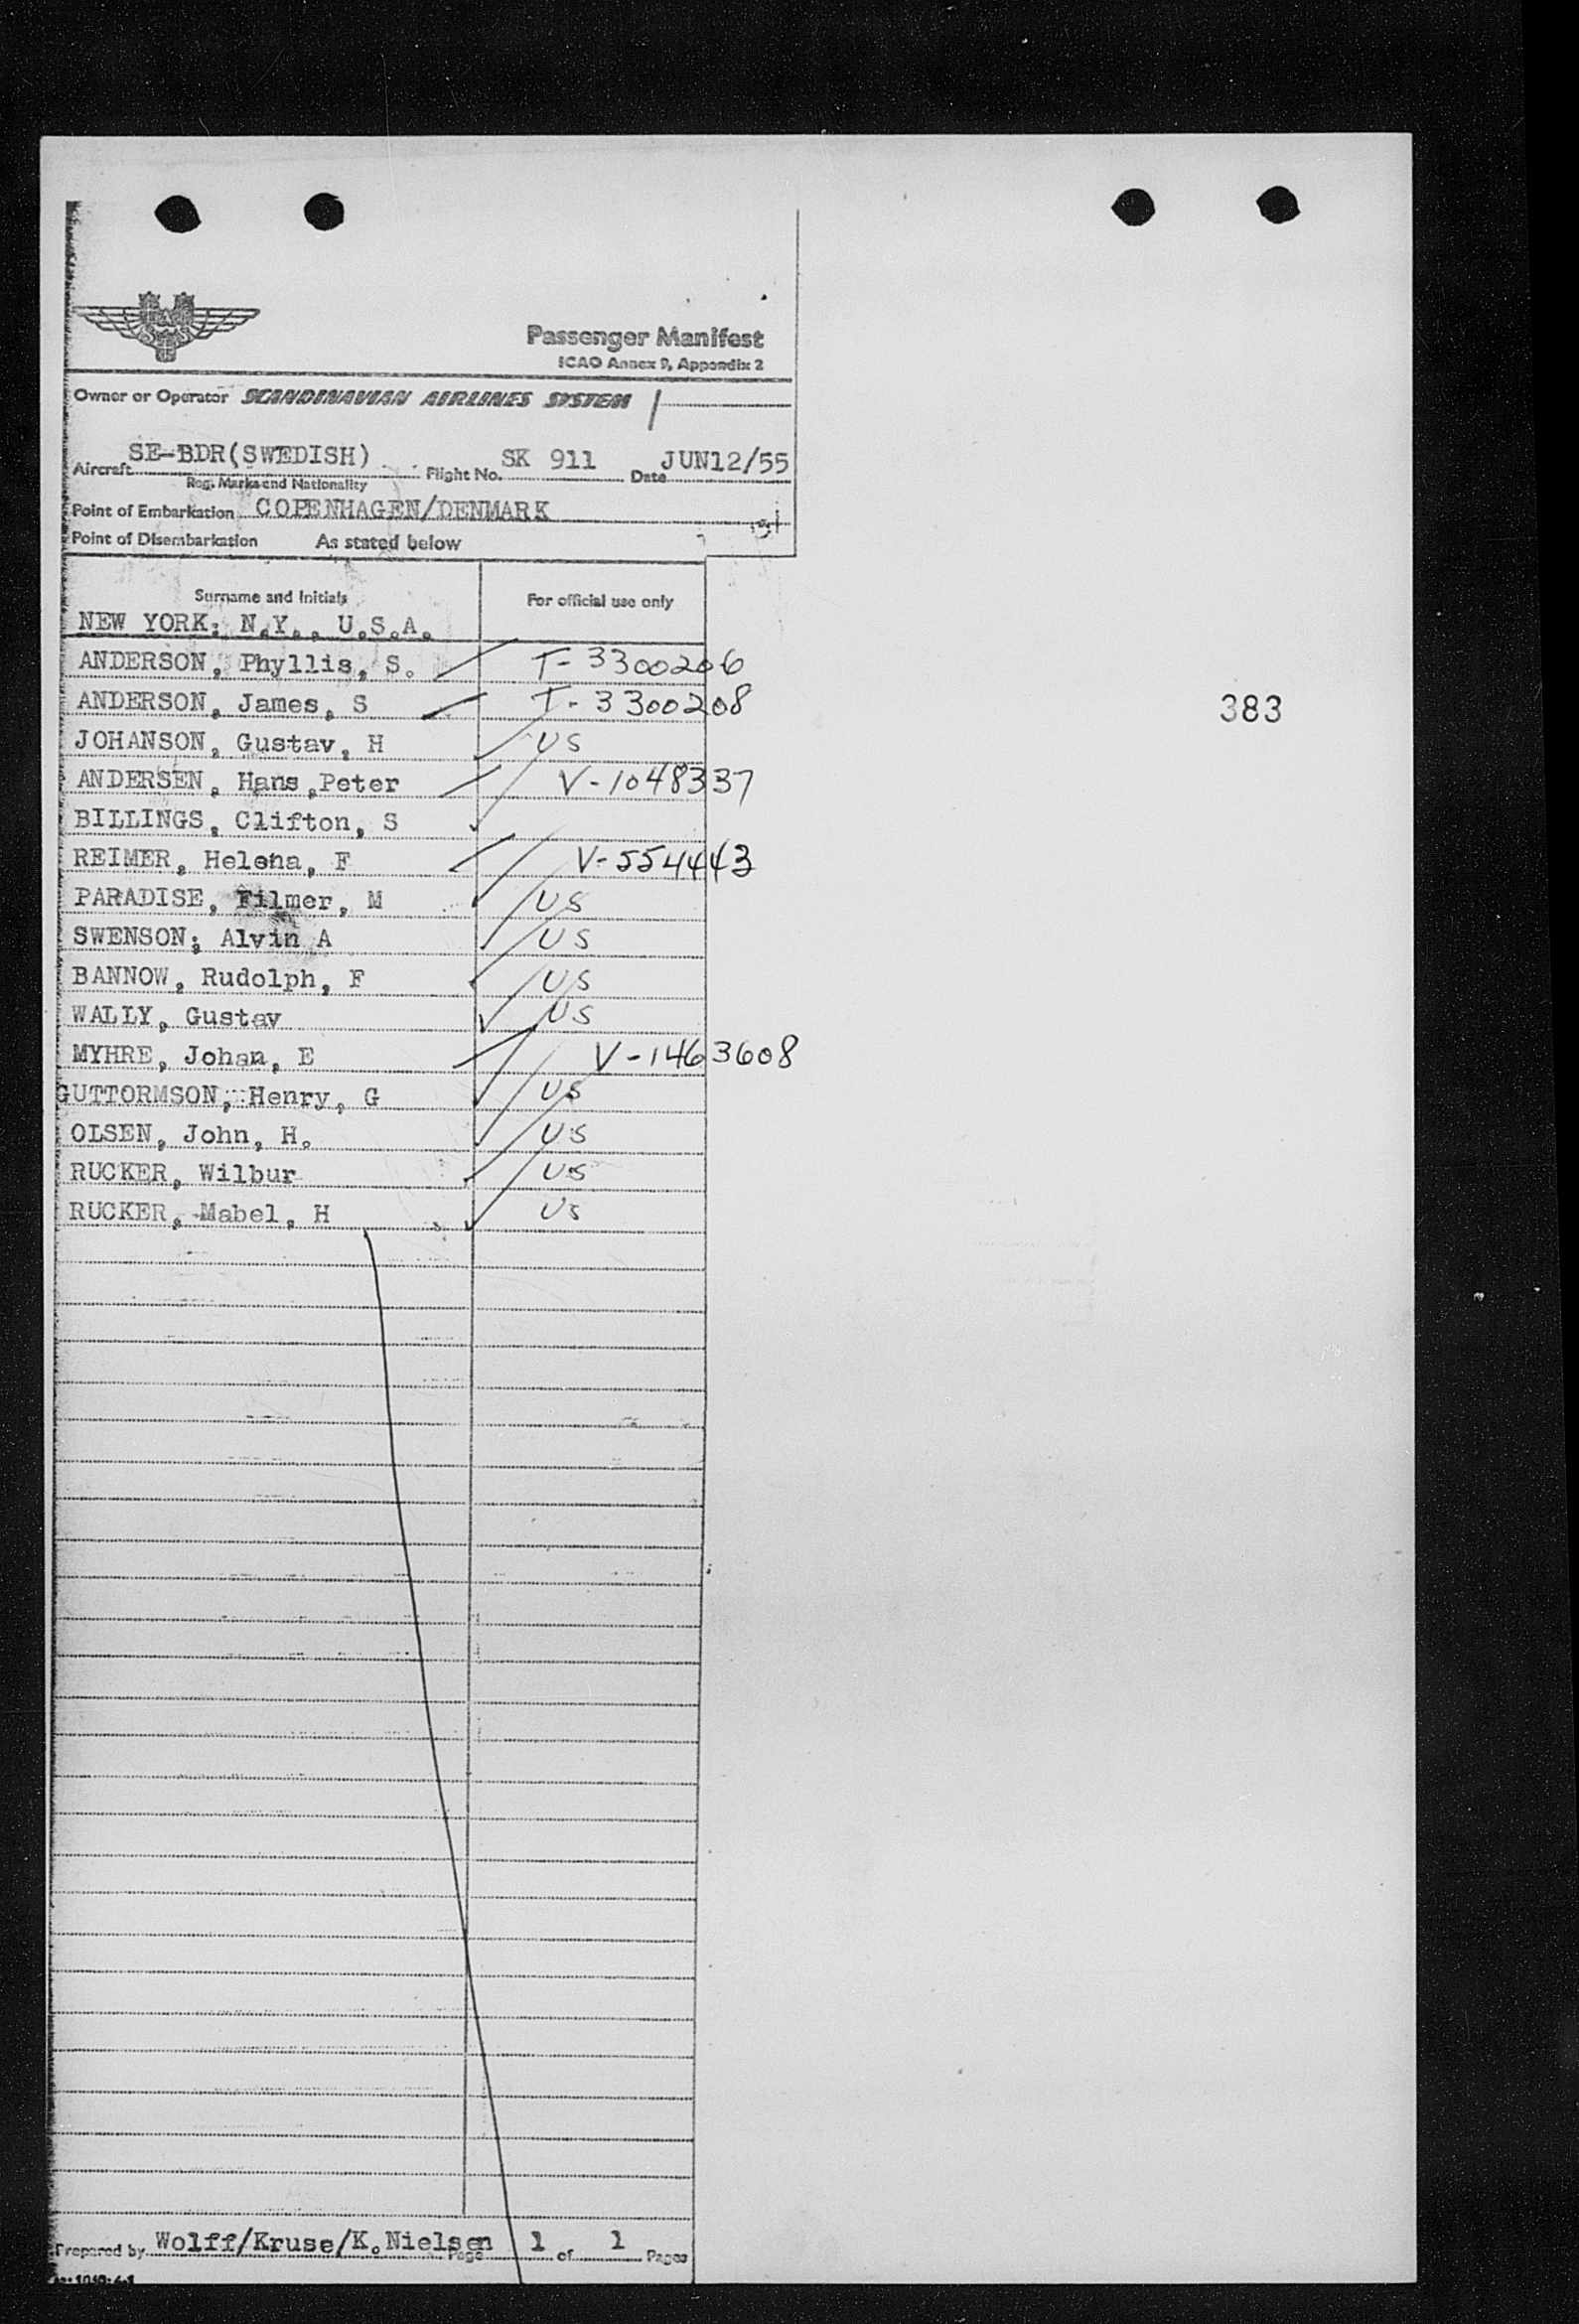 Passenger Manifest
ICAO Annex 9, Appendix 2
Owner or Operator SCANDINAVIAN AIRLINES SYSTEM
Aircraft SE-BDR(SWEDISH) Flight No. SK 911 Date JUN12/55
Reg. Marks and Nationality
Point of Embarkation COPENHAGEN/DENMARK
Point of Disembarkation As stated below
Surname and Initials For official use only
NEW YORK; N.Y., U.S.A.
ANDERSON, Phyllis, S. T-3300206
ANDERSON, James, S T-3300208
383
JOHANSON, Gustav, H US
ANDERSEN, Hans,Peter V-1048337
BILLINGS, Clifton, S
REIMER, Helena, F V-554443
PARADISE, Filmer, M US
SWENSON; Alvin A US
BANNOW, Rudolph, F US
WALLY, Gustav US
MYHRE, Johan, E V-1463608
GUTTORMSON, Henry, G US
OLSEN, John, H. US
RUCKER, Wilbur US
RUCKER, Mabel, H US
Prepared by Wolff/Kruse/K.Nielsen Page 1 of 1 Pages